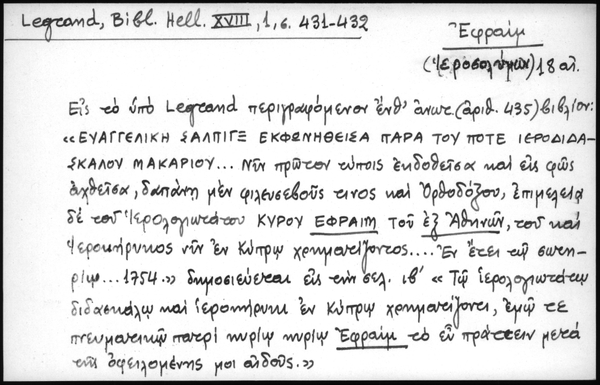 Legrand, Bibl. Hell. XVIII, 1, σ. 431-432
Ἐφραίμ
(Ἱεροσολύμων) 18 αἰ.
Εἰς τὸ ὑπὸ Legrand περιγραφόμενον ἔνθ' ἀνωτ. (ἀριθ. 435) βιβλίον:
«ΕΥΑΓΓΕΛΙΚΗ ΣΑΛΠΙΓΞ ΕΚΦΩΝΗΘΕΙΣΑ ΠΑΡΑ ΤΟΥ ΠΟΤΕ ΙΕΡΟΔΙΔΑ-
ΣΚΑΛΟΥ ΜΑΚΑΡΙΟΥ... Νῦν πρῶτον τύποις ἐκδοθεῖσα καὶ εἰς φῶς
ἀχθεῖσα, δαπάνῃ μὲν φιλευσεβοῦς τινος καὶ Ὀρθοδόξου, ἐπιμελείᾳ
δὲ τοῦ Ἱερολογιωτάτου ΚΥΡΟΥ ΕΦΡΑΙΜ τοῦ ἐξ Ἀθηνῶν, τοῦ καὶ
Ἱεροκήρυκος νῦν ἐν Κύπρῳ χρηματίζοντος.... Ἐν ἔτει τῷ σωτη-
ρίῳ... 1754.» δημοσιεύεται εἰς τὴν σελ. ιβ' «Τῷ ἱερολογιωτάτῳ
διδασκάλῳ καὶ ἱεροκήρυκι ἐν Κύπρῳ χρηματίζοντι, ἐμῷ τε
πνευματικῷ πατρὶ κυρίῳ κυρίῳ Ἐφραὶμ τὸ εὖ πράττειν μετὰ
τῆς ὀφειλομένης μοι αἰδοῦς.»